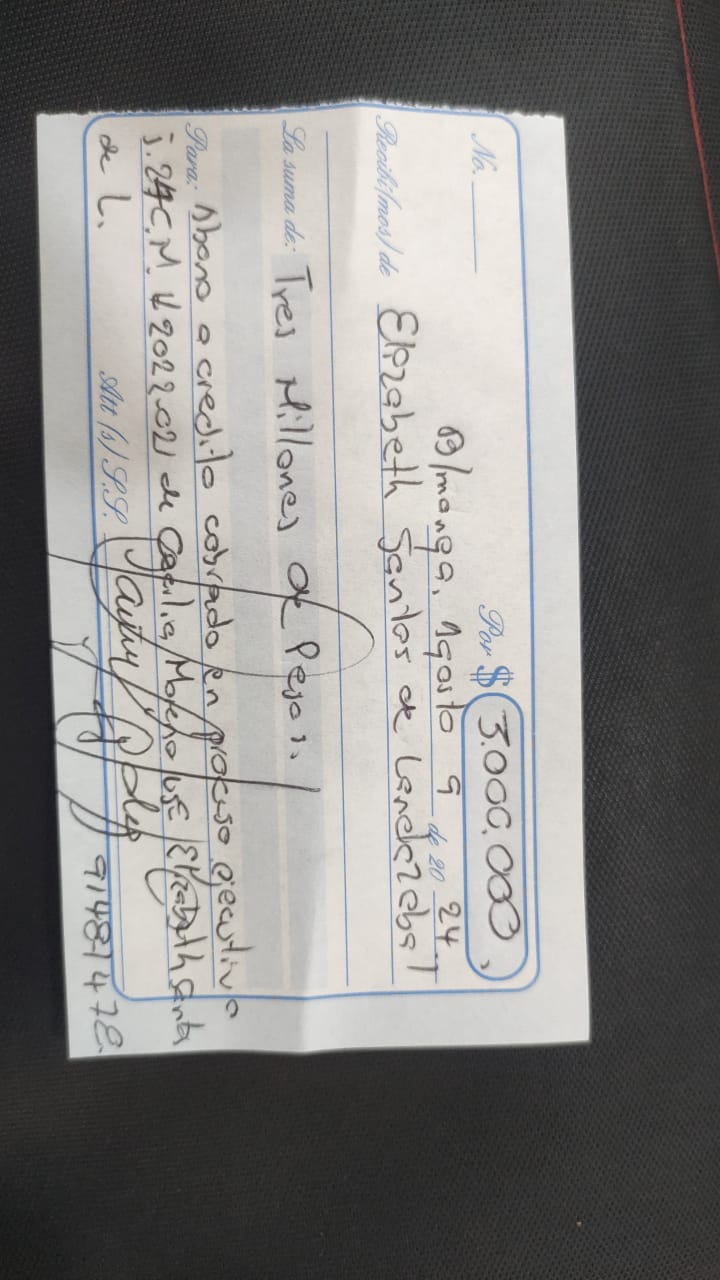 No. Por $ 3.000.000,
B/manga, Agosto 9 de 20 24
Recibí(mos) de Elizabeth Santos de Landazabal
La suma de: Tres Millones de Pesos.
Para: Abono a credito cobrado en proceso ejecutivo
J. 24 C.M. 2022.021 de Cecilia Moreno vs E/Elizabeth Santos
de L. Att (s) S.S.
91481478.